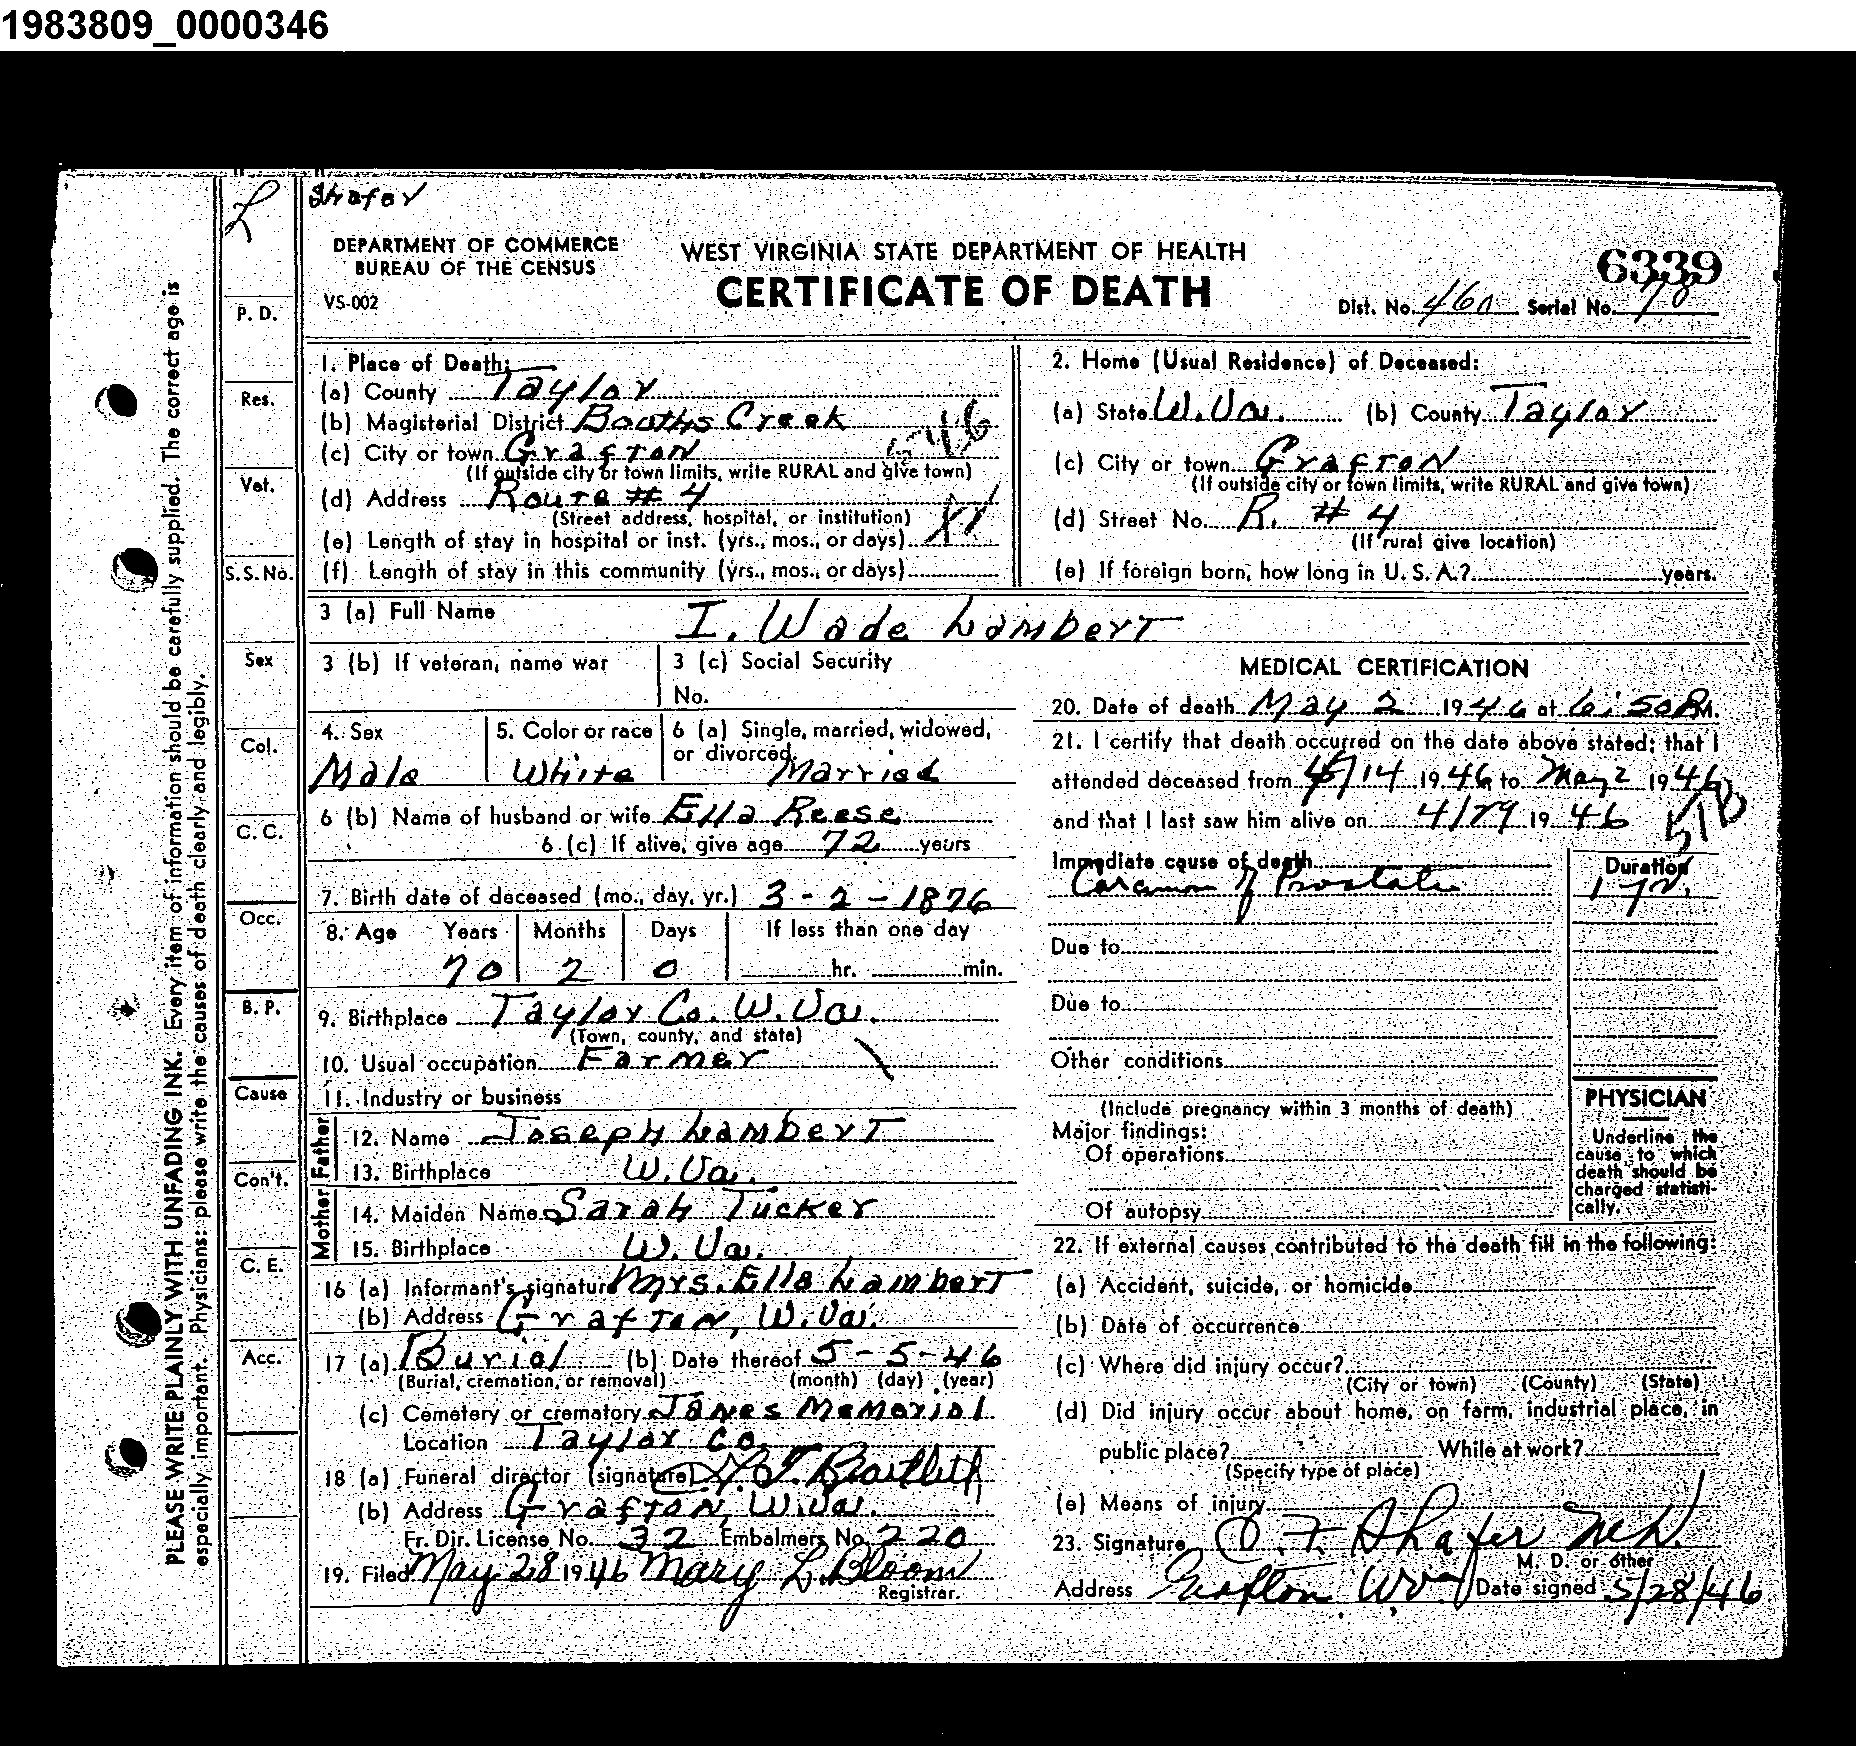 1983809_0000346
L
Shafer
DEPARTMENT OF COMMERCE
BUREAU OF THE CENSUS
VS-002
WEST VIRGINIA STATE DEPARTMENT OF HEALTH
CERTIFICATE OF DEATH
6339
Dist. No. 460 Serial No. 78
PLEASE WRITE PLAINLY WITH UNFADING INK. Every item of information should be carefully supplied. The correct age is
especially important. Physicians: please write the causes of death clearly and legibly.
P. D.
Res.
Vet.
S. S. No.
Sex
Col.
C. C.
Occ.
B. P.
Cause
Con't.
C. E.
Acc.
1. Place of Death:
(a) County Taylor
(b) Magisterial District Booths Creek
(c) City or town Grafton
(If outside city or town limits, write RURAL and give town)
(d) Address Route # 4
(Street address, hospital, or institution)
(e) Length of stay in hospital or inst. (yrs., mos., or days)
(f) Length of stay in this community (yrs., mos., or days)
2. Home (Usual Residence) of Deceased:
(a) State W. Va. (b) County Taylor
(c) City or town Grafton
(If outside city or town limits, write RURAL and give town)
(d) Street No. R. # 4
(If rural give location)
(e) If foreign born, how long in U. S. A.? years.
3 (a) Full Name I. Wade Lambert
3 (b) If veteran, name war
3 (c) Social Security
No.
4. Sex Male
5. Color or race White
6 (a) Single, married, widowed,
or divorced Married
6 (b) Name of husband or wife Ella Reese
6 (c) If alive, give age 72 years
7. Birth date of deceased (mo., day, yr.) 3-2-1876
8. Age Years Months Days If less than one day
70 2 0 hr. min.
9. Birthplace Taylor Co. W. Va.
(Town, county, and state)
10. Usual occupation Farmer
11. Industry or business
Father
12. Name Joseph Lambert
13. Birthplace W. Va.
Mother
14. Maiden Name Sarah Tucker
15. Birthplace W. Va.
16 (a) Informant's signature Mrs. Ella Lambert
(b) Address Grafton, W. Va.
17 (a) Burial (b) Date thereof 5-5-46
(Burial, cremation, or removal) (month) (day) (year)
(c) Cemetery or crematory Janes Memorial
Location Taylor Co
18 (a) Funeral director (signature) Bartlett
(b) Address Grafton, W. Va.
Fr. Dir. License No. 32 Embalmers No. 220
19. Filed May 28 1946 Mary L. Bloom
Registrar.
MEDICAL CERTIFICATION
20. Date of death May 2 1946 at 6:50 P.M.
21. I certify that death occurred on the date above stated; that I
attended deceased from 4/14 1946 to May 2 1946
and that I last saw him alive on 4/29 1946
Immediate cause of death
of Prostate
Duration
1 yr.
Due to
Due to
Other conditions
(Include pregnancy within 3 months of death)
Major findings:
Of operations
Of autopsy
PHYSICIAN
Underline the
cause to which
death should be
charged statisti-
cally.
22. If external causes contributed to the death fill in the following:
(a) Accident, suicide, or homicide
(b) Date of occurrence
(c) Where did injury occur?
(City or town) (County) (State)
(d) Did injury occur about home, on farm, industrial place, in
public place? While at work?
(Specify type of place)
(e) Means of injury
23. Signature O. F. Shafer M.D.
M. D. or other
Address Grafton W. Va Date signed 5/28/46